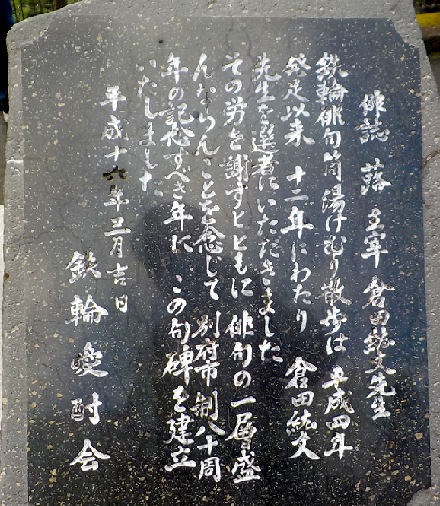 俳誌 蕗 主宰 倉田紘文先生
鉄輪俳句筒湯けむり散歩は 平成四年
発足以来 十二年にわたり 倉田紘文
先生を選者にいただきました
その労を謝すとともに 俳句の一層の盛
んならんことを念じて 別府市制八十周
年の記念すべき年に この句碑を建立
いたしました
平成十六年三月吉日
鉄輪愛酎会